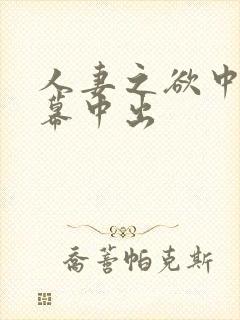 人妻之欲中
幕中出
乔蓍帕克斯